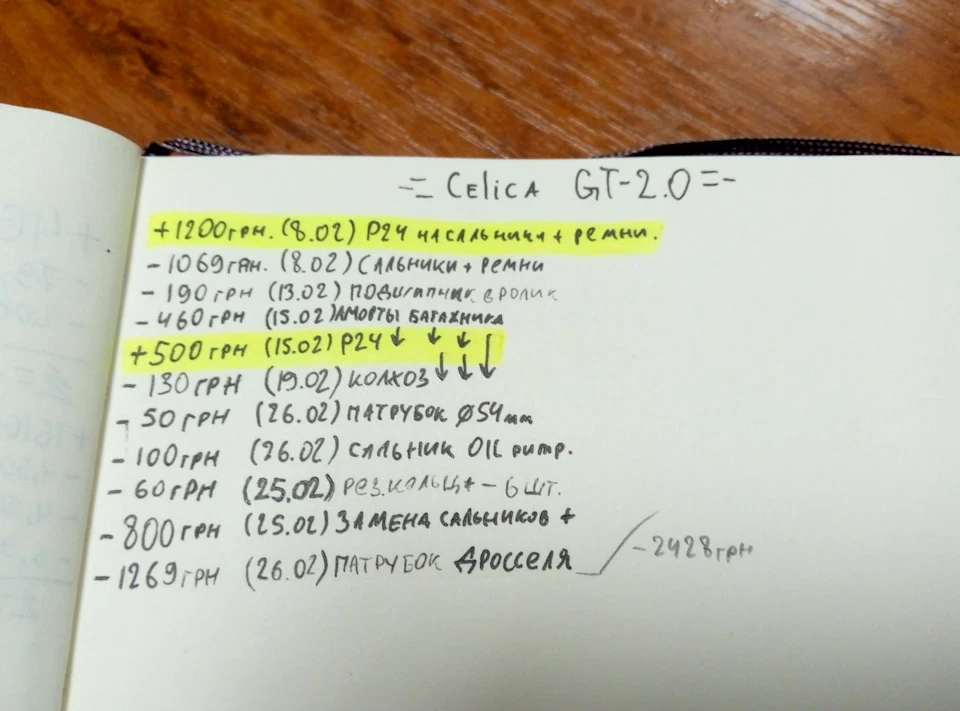 -= Celica GT-2.0 =-
+1200грн. (8.02) Р24 на сальники + ремни.
-1069грн. (8.02) сальники + ремни
-190грн (13.02) подшипник в ролик
-460грн (15.02) Аморты багажника
+500грн (15.02) Р24 ↓ ↓ ↓ ↓
-130грн (19.02) колхоз ↓ ↓ ↓
-50грн (26.02) патрубок Ø54мм
-100грн (26.02) сальник OIL
-60грн (25.02) рез. кольца - 6 шт.
-800грн (25.02) замена сальников +
-1269грн (26.02) патрубок дросселя
-2428грн